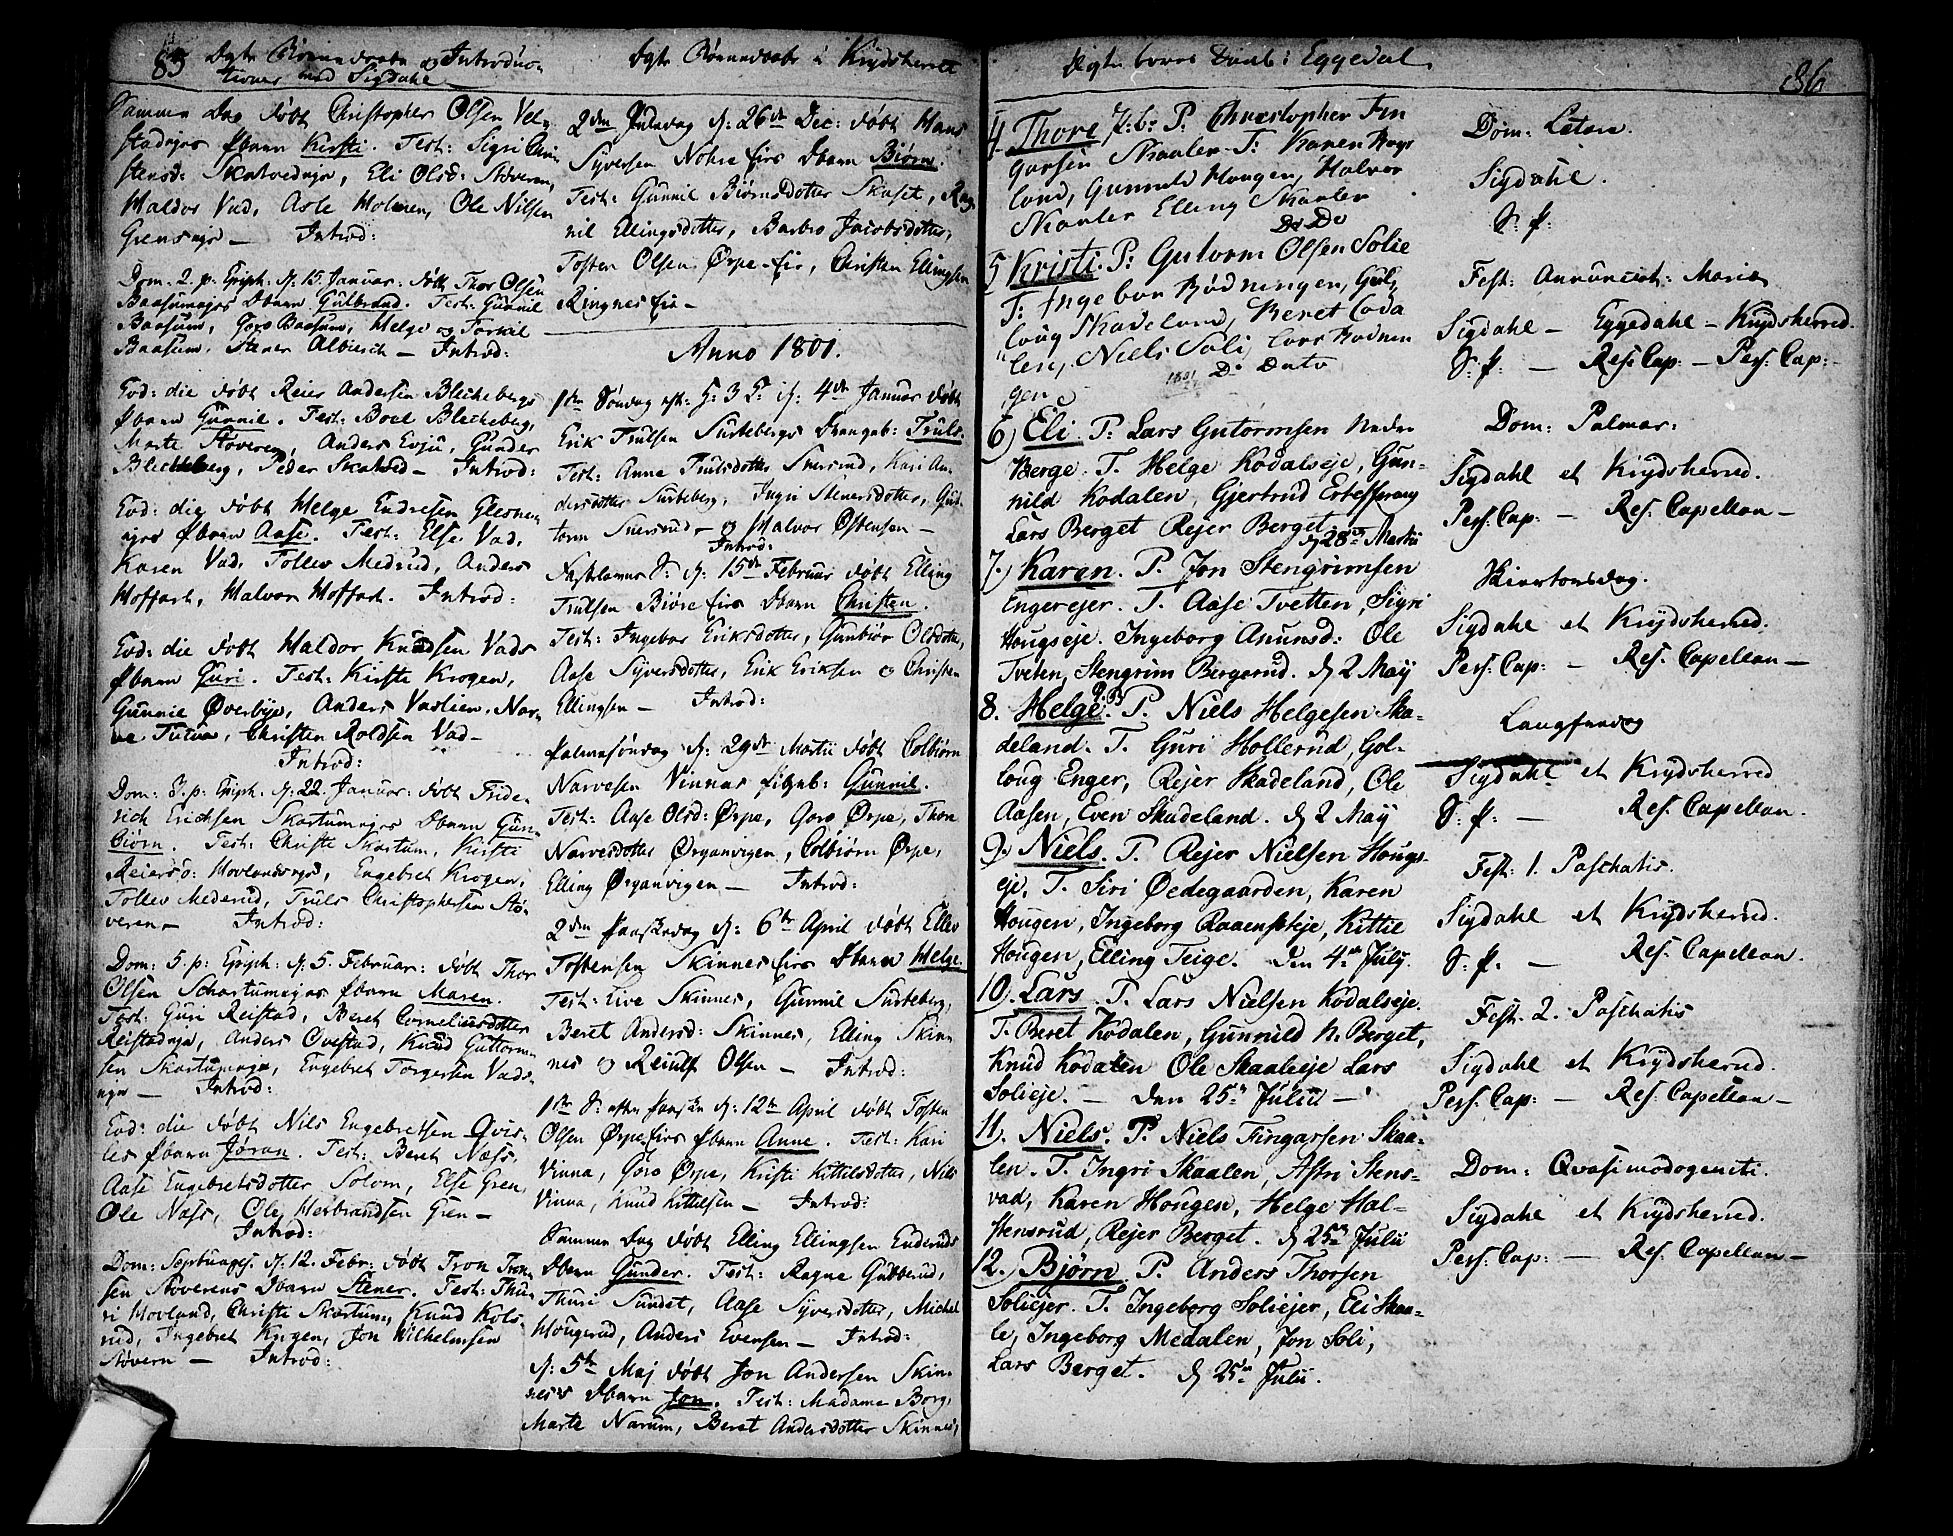 85 Dgte Børnedaabe og Introduc-
tioner med Sigdahl
Samme Dag døbt Christopher Olsen Vel-
stadejes Pbarn Kirsti. Test: Sigri Chri-
stensd: Skatvedeje, Eli Olsd: Støveren,
Haldor Vad, Asle Holmen, Ole Nilsen
Grenseje — Introd:
Dom: 2. p: Epiph: d: 15. Januar: døbt Thor Olsen
Baasumejes Dbarn Gulbrand. Test: Gunnil
Baasum, Goro Baasum, Helge og Torkil
Baasum, Stener Albiersh — Introd:
Eod: die døbt Reier Andersen Blekebergs
Pbarn Gunnil. Test: Boel Blekeberg,
Marte Støveren, Anders Evju, Gunder
Blekeberg, Peder Skatved — Introd:
Eod: die døbt Helge Endresen Glesne-
ejes Pbarn Aase. Test: Else Vad,
Karen Vad, Tollev Medrud, Anders
Hoffart, Halvor Hoffart. Introd:
Eod: die døbt Haldor Knudsen Vads
Pbarn Guri. Test: Kirste Krogen,
Gunnil Øverbye, Anders Vaslien, Nar-
ve Tutua, Christen Roldsen Vad —
Introd:
Dom: 3. p: Epiph: d: 22. Januar: døbt Fride-
rich Erichsen Skartumejes Dbarn Gun-
biørn. Test: Christi Skartum, Kirsti
Reiersd: Hovlandseje, Engebret Krogen,
Tollev Mederud, Truls Christophersen Stø-
veren — Introd:
Dom: 5. p: Epiph: d: 5. Februar: døbt Thor
Olsen Schartumejes Pbarn Maren.
Test: Guri Reistad, Beret Corneliusdotter
Reistadeje, Anders Ovestad, Knud Guttorm-
sen Skartumeje, Engebret Torgersen Vads-
eje — Introd:
Eod: die døbt Nils Engebretsen Qvis-
les Pbarn Jøran. Test: Beret Næss,
Aase Engebretsdotter Solom, Else Gren,
Ole Næss, Ole Herbrandsen Gren —
Introd:
Dom: Septuages: d: 12. Febr: døbt Tron Tron-
sen Støverens Dbarn Stener. Test: Thu-
ri Hovland, Christi Skartum, Knud Kols-
rud, Ingebret Krogen, Jon Wilhelmsen
Støvern — Introd:
Dgte Børnedaabe i Krydsherret
2den Juledag d: 26de Dec: døbt Hans
Syversen Nohre firs Dbarn Biørn.
Test: Gunnil Biørnsdotter Skaset, Rag-
nil Ellingsdotter, Barbro Jacobsdotter,
Tosten Olsen Ørpe-fir, Christen Ellingsen
Ringnes fir —
Anno 1801.
1ste Søndag eft: H: 3 K: d: 4de Januar døbt
Erik Trulsen Surtebergs Drengeb: Truls.
Test: Anne Trulsdotter Snersrud, Kari An-
dersdotter Surteberg, Ingri Stenersdotter, Gut-
torm Snersrud — og Halvor Østensen —
Introd:
Fastelavns S: d: 15de Februar døbt Elling
Trulsen Biøre firs Dbarn Christen.
Test: Ingebor Eriksdotter, Gunbiør Olsdotter,
Aase Syversdotter, Erik Eriksen og Christen
Ellingsen — Introd:
Palmesøndag d: 29de Martii døbt Colbiørn
Narvesen Vinnas Pigeb: Gunnil.
Test: Aase Olsd: Ørpe, Goro Ørpe, Thore
Narvesdotter Ørganvigen, Colbiørn Ørpe,
Elling Ørganvigen — Introd:
2den Paaskedag d: 6te April døbt Ellev
Tostensen Skinnes firs Dbarn Helge.
Test: Live Skinnes, Gunnil Surteberg,
Beret Andersd: Skinnes, Elling Skin-
nes og Reiulf Olsen — Introd:
1ste S: efter Paaske d: 12te April døbt Tosten
Olsen Ørpefirs Pbarn Anne. Test: Kari
Vinna, Goro Ørpe, Kirsti Kittelsdotter, Nils
Vinna, Knud Kittelsen — Introd:
Sammen Dag døbt Elling Ellingsen Enderuds
Dbarn Gunder. Test: Ragne Gubberud,
Thuri Sundet, Aase Syversdotter, Michel
Hougerud, Anders Evensen — Introd:
d: 5te Maj døbt Jon Andersen Skin-
neses Dbarn Jon. Test: Madame Borg,
Marte Narum, Beret Andersdotter Skinnes,
Digte børns Daab i Eggedal
4 Thore P: Christopher Fin
garsen Skaalen. T: Karen Houg
lond, Gunnild Hougen, Halvor
Skaalen Elling Skaalen
Do Do
5 Kristi. P: Gutorm Olsen Solie
T: Ingebor Bødningen, Gul-
loug Skadeland, Beret Coda
len, Niels Soli, Lars Bødnen
gen Do Dato
1801
6) Eli. P: Lars Gutormsen Neder
Berge. T. Helge Kodalseje, Gun-
nild Kodalen, Gjertrud Ertesprang
Lars Berget Rejer Berget
d 28de Martii
7.) Karen. P. Jon Stengrimsen
Engerejer. T. Aase Tvetten, Sigri
Hougseje. Ingeborg Asmunsd: Ole
Tveten, Stengrim Bergerud. d 2 May
8. Helge. P. Niels Helgesen Ska-
deland. T. Guri Hollerud, Gol-
loug Enger, Rejer Skadeland, Ole
Aasen, Even Skadeland. d 2 May
9.) Niels. P. Rejer Nielsen Hougs-
eje, T. Siri Øedegaarden, Karen
Hougen, Ingeborg Raaenseje, Kittil
Hougen, Elling Teige. Den 4de July.
10. Lars. P. Lars Nielsen Kodalseje.
T. Beret Kodalen, Gunnild N. Berget,
Knud Kodalen Ole Skaaleeje Lars
Solieje. — Den 25de Julii —
11). Niels. P. Niels Fingarsen Skaa-
len. T. Ingri Skaalen, Astri Stens-
vad, Karen Hougen, Helge Hal-
stensrud, Rejer Berget. d 25de Julii
12. Bjørn P. Anders Thorsen
Soliejer. T. Ingeborg Soliejer, Eli Skaa-
le, Ingeborg Medalen, Jon Soli,
Lars Berget. d 25de Julii.
86
Dom: Letare.
Sigdahl.
S: p:
Fest: Annunciat: Mariæ
Sigdahl — Eggedahl — Krydsherred.
S: p: — Res: Cap: — Pers: Cap: —
Dom: Palmar:
Sigdahl et Krydsherred.
Pers: Cap: — Res: Capellan —
Skiertorsdag.
Sigdahl et Krydsherred.
Pers: Cap: — Res: Capellan —
Langfredag
Sigdahl et Krydsherred
S: p: — Res: Capellan.
Fest: 1. Paschatis.
Sigdahl et Krydsherred.
S: p. — Res: Capellan.
Fest: 2. Paschatis
Sigdahl et Krydsherred.
Pers: Cap: — Res: Capellan —
Dom: Qvasimodogeniti.
Sigdahl et Krydsherred.
Pers: Cap: — Res: Capellan —